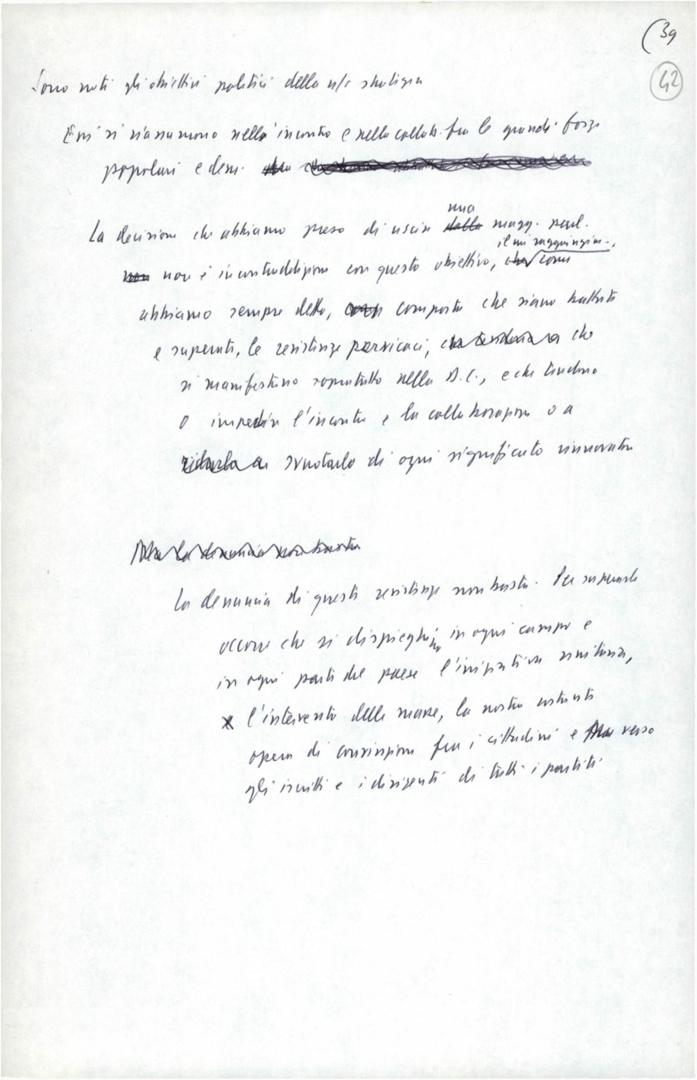 (39
42
Sono noti gli obiettivi politici della n/s strategia
Essi si riassumono nell'incontro e nella collab. fra le grandi forze
popolari e dem.
La decisione che abbiamo preso di uscire
una
dalla magg. parl.
il cui raggiungim.,
non non è in contraddizione con questo obiettivo, che come
abbiamo sempre detto, comporta che siano battute
e superate, le resistenze pervicaci, che
si manifestano soprattutto nella D.C., e che tendono
o impedire l'incontro e la collaborazione o a
ridurla a svuotarlo di ogni significato rinnovatore
Ma la denuncia non basta
La denuncia di queste resistenze non basta. Per superarle
occorre che si dispieghino in ogni campo e
in ogni parte del paese l'iniziativa unitaria,
x l'intervento delle masse, la nostra costante
opera di convinzione fra i cittadini e verso
gli iscritti e i dirigenti di tutti i partiti